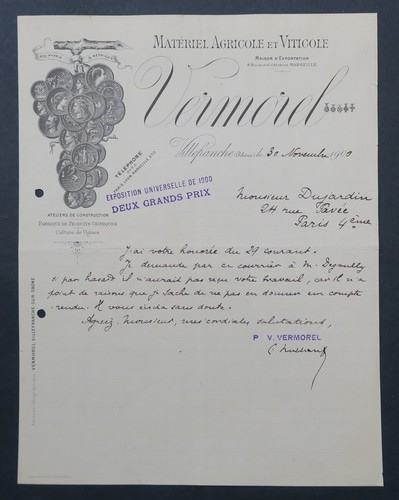 MATÉRIEL AGRICOLE ET VITICOLE
MAISON D'EXPORTATION
MARSEILLE
Vermorel
TÉLÉPHONE
Villefranche (Rhône) le 30 Novembre 1900
EXPOSITION UNIVERSELLE DE 1900
DEUX GRANDS PRIX
ATELIERS DE CONSTRUCTION
FABRIQUE DE PRODUITS CHIMIQUES
Culture de Vignes
Monsieur Dujardin
24 rue Pavée
Paris 4ème
J'ai votre honorée du 29 courant.
Je demande par ce courrier à M.
si par hasard il n'aurait pas reçu votre travail, car il n'a
point de raison que je sache de ne pas en donner un compte
rendu. Il vous
Agréez Monsieur, mes cordiales salutations,
P V. VERMOREL
VERMOREL VILLEFRANCHE-SUR-SAÔNE